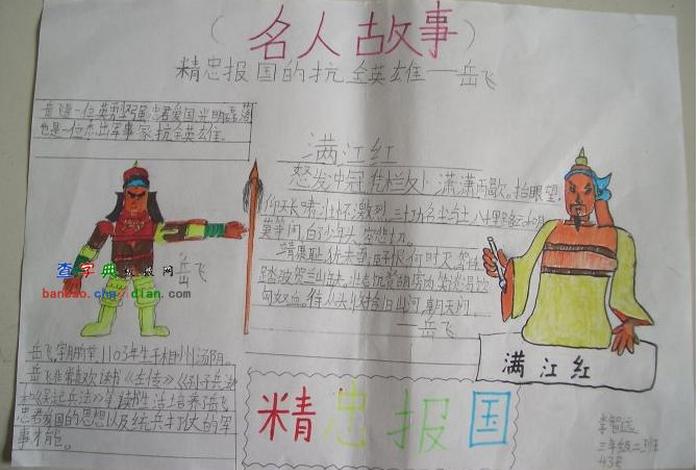 （名人故事）
精忠报国的抗全英雄——岳飞
岳飞是一位英勇坚强忠君爱国光明磊落
也是一位杰出军事家抗全英雄。
满江红
怒发冲冠，凭栏处，潇潇雨歇。抬眼望，
仰天长啸，壮怀激烈，三十功名尘与土，八千里路云和月
莫等闲白了少年头，空悲切。
靖康耻，犹未
踏破贺兰山缺
匈奴血。待从头收拾旧山河，朝天阙。
——岳飞
岳飞
查字典
板报网
banbao.chazidian.com
岳飞，字鹏举，1103年生于相州汤阴。
岳飞非常喜欢读书《左传》《孙子兵法》
和《吴起兵法》等读物，培养了岳飞
忠君爱国的思想以及统兵打仗的军
事才能。
满江红
精忠报国
李智远
三年级二班
43号